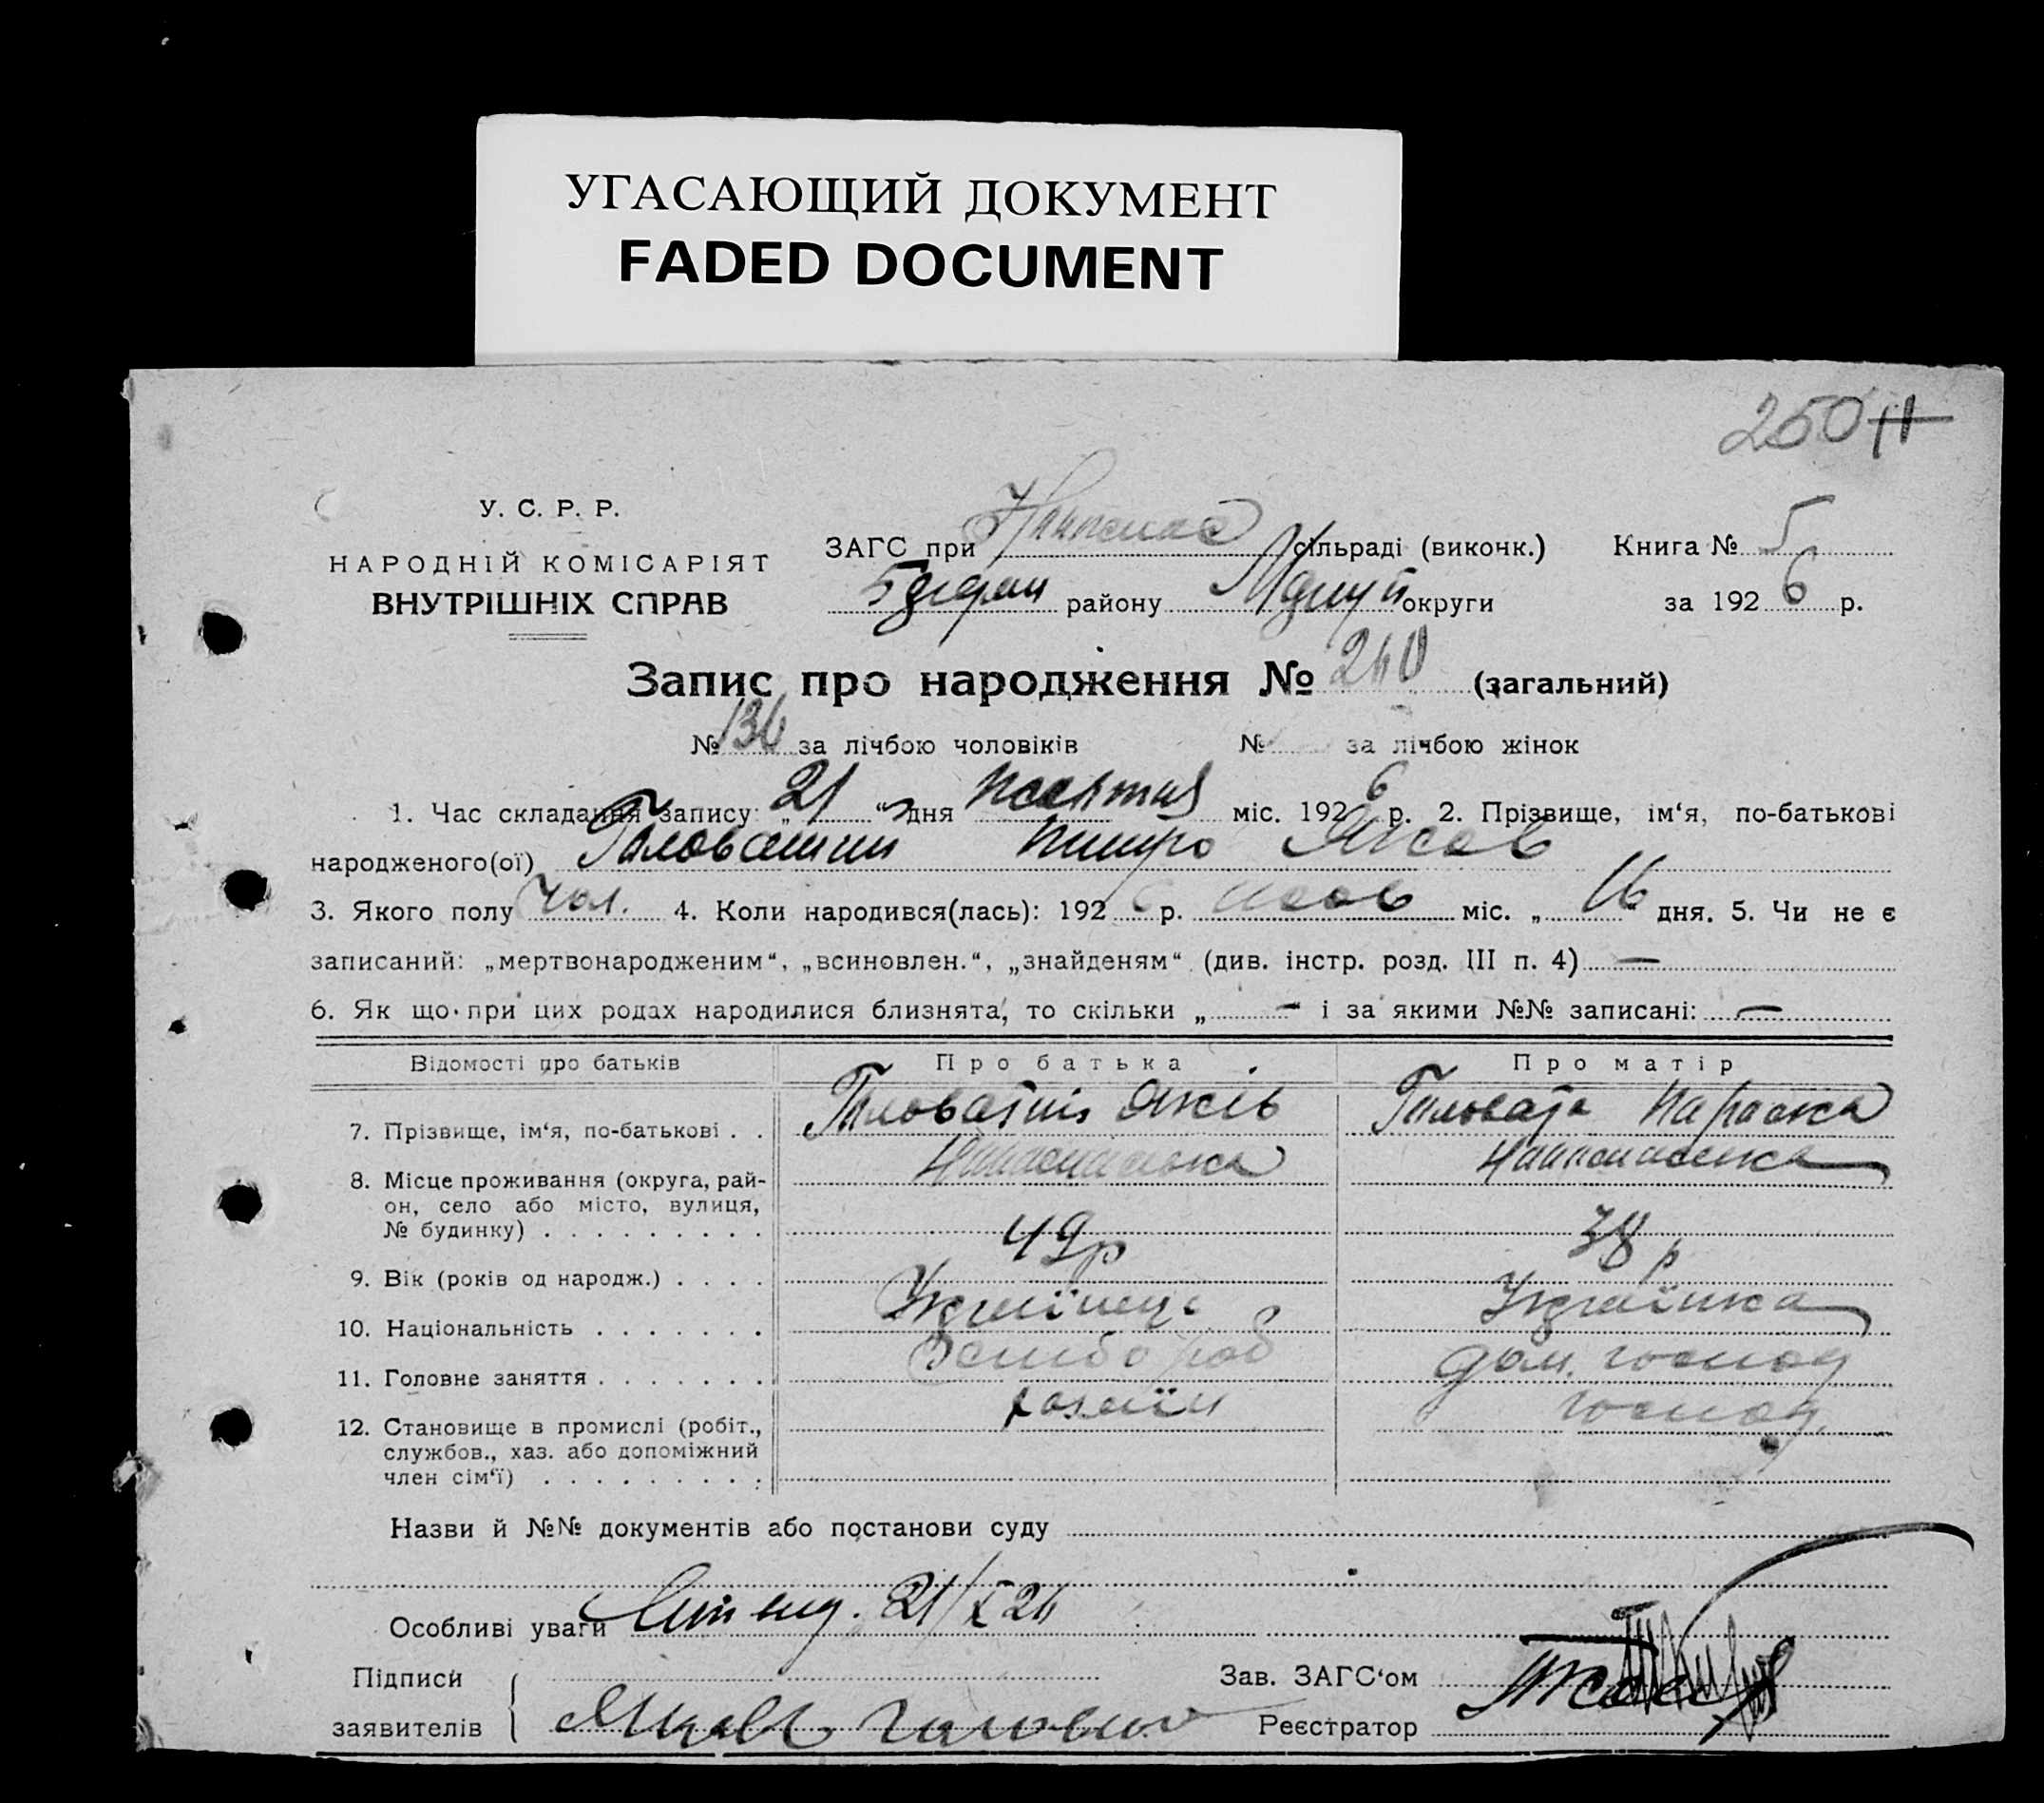 УГАСАЮЩИЙ ДОКУМЕНТ
FADED DOCUMENT
250 11
У. С. Р. Р.
НАРОДНІЙ КОМІСАРІЯТ
ВНУТРІШНІХ СПРАВ
ЗАГС при сільраді (виконк.) Книга № 5
району округи за 192 6 р.
Запис про народження № 240 (загальний)
№ 136 за лічбою чоловіків № за лічбою жінок
1. Час складання запису: „ 21 “ дня жовтня міс. 192 6 р. 2. Прізвище, ім‘я, по-батькові
народженого(ої) Головатий Яков
3. Якого полу чол. 4. Коли народився(лась): 192 6 р. жов міс. „ 16 “ дня. 5. Чи не є
записаний: „мертвонародженим“, „всиновлен.“, „знайденям“ (див. інстр. розд. III п. 4) —
6. Як що при цих родах народилися близнята, то скільки „ — і за якими №№ записані: —
Відомості про батьків Про батька Про матір
7. Прізвище, ім‘я, по-батькові . . Головатий Яків Головата Параска
8. Місце проживання (округа, рай-
он, село або місто, вулиця,
№ будинку) . . . . . . . . .
9. Вік (років од народж.) . . . . 49 р 38 р
10. Національність . . . . . . . Українець Українка
11. Головне заняття . . . . . . . Хлібороб дом. господ
12. Становище в промислі (робіт., хазяїн господ
службов., хаз. або допоміжний
член сім‘ї) . . . . . . . . .
Назви й №№ документів або постанови суду
Особливі уваги 21/X 26
Підписи Зав. ЗАГС‘ом
заявителів Яков Реєстратор